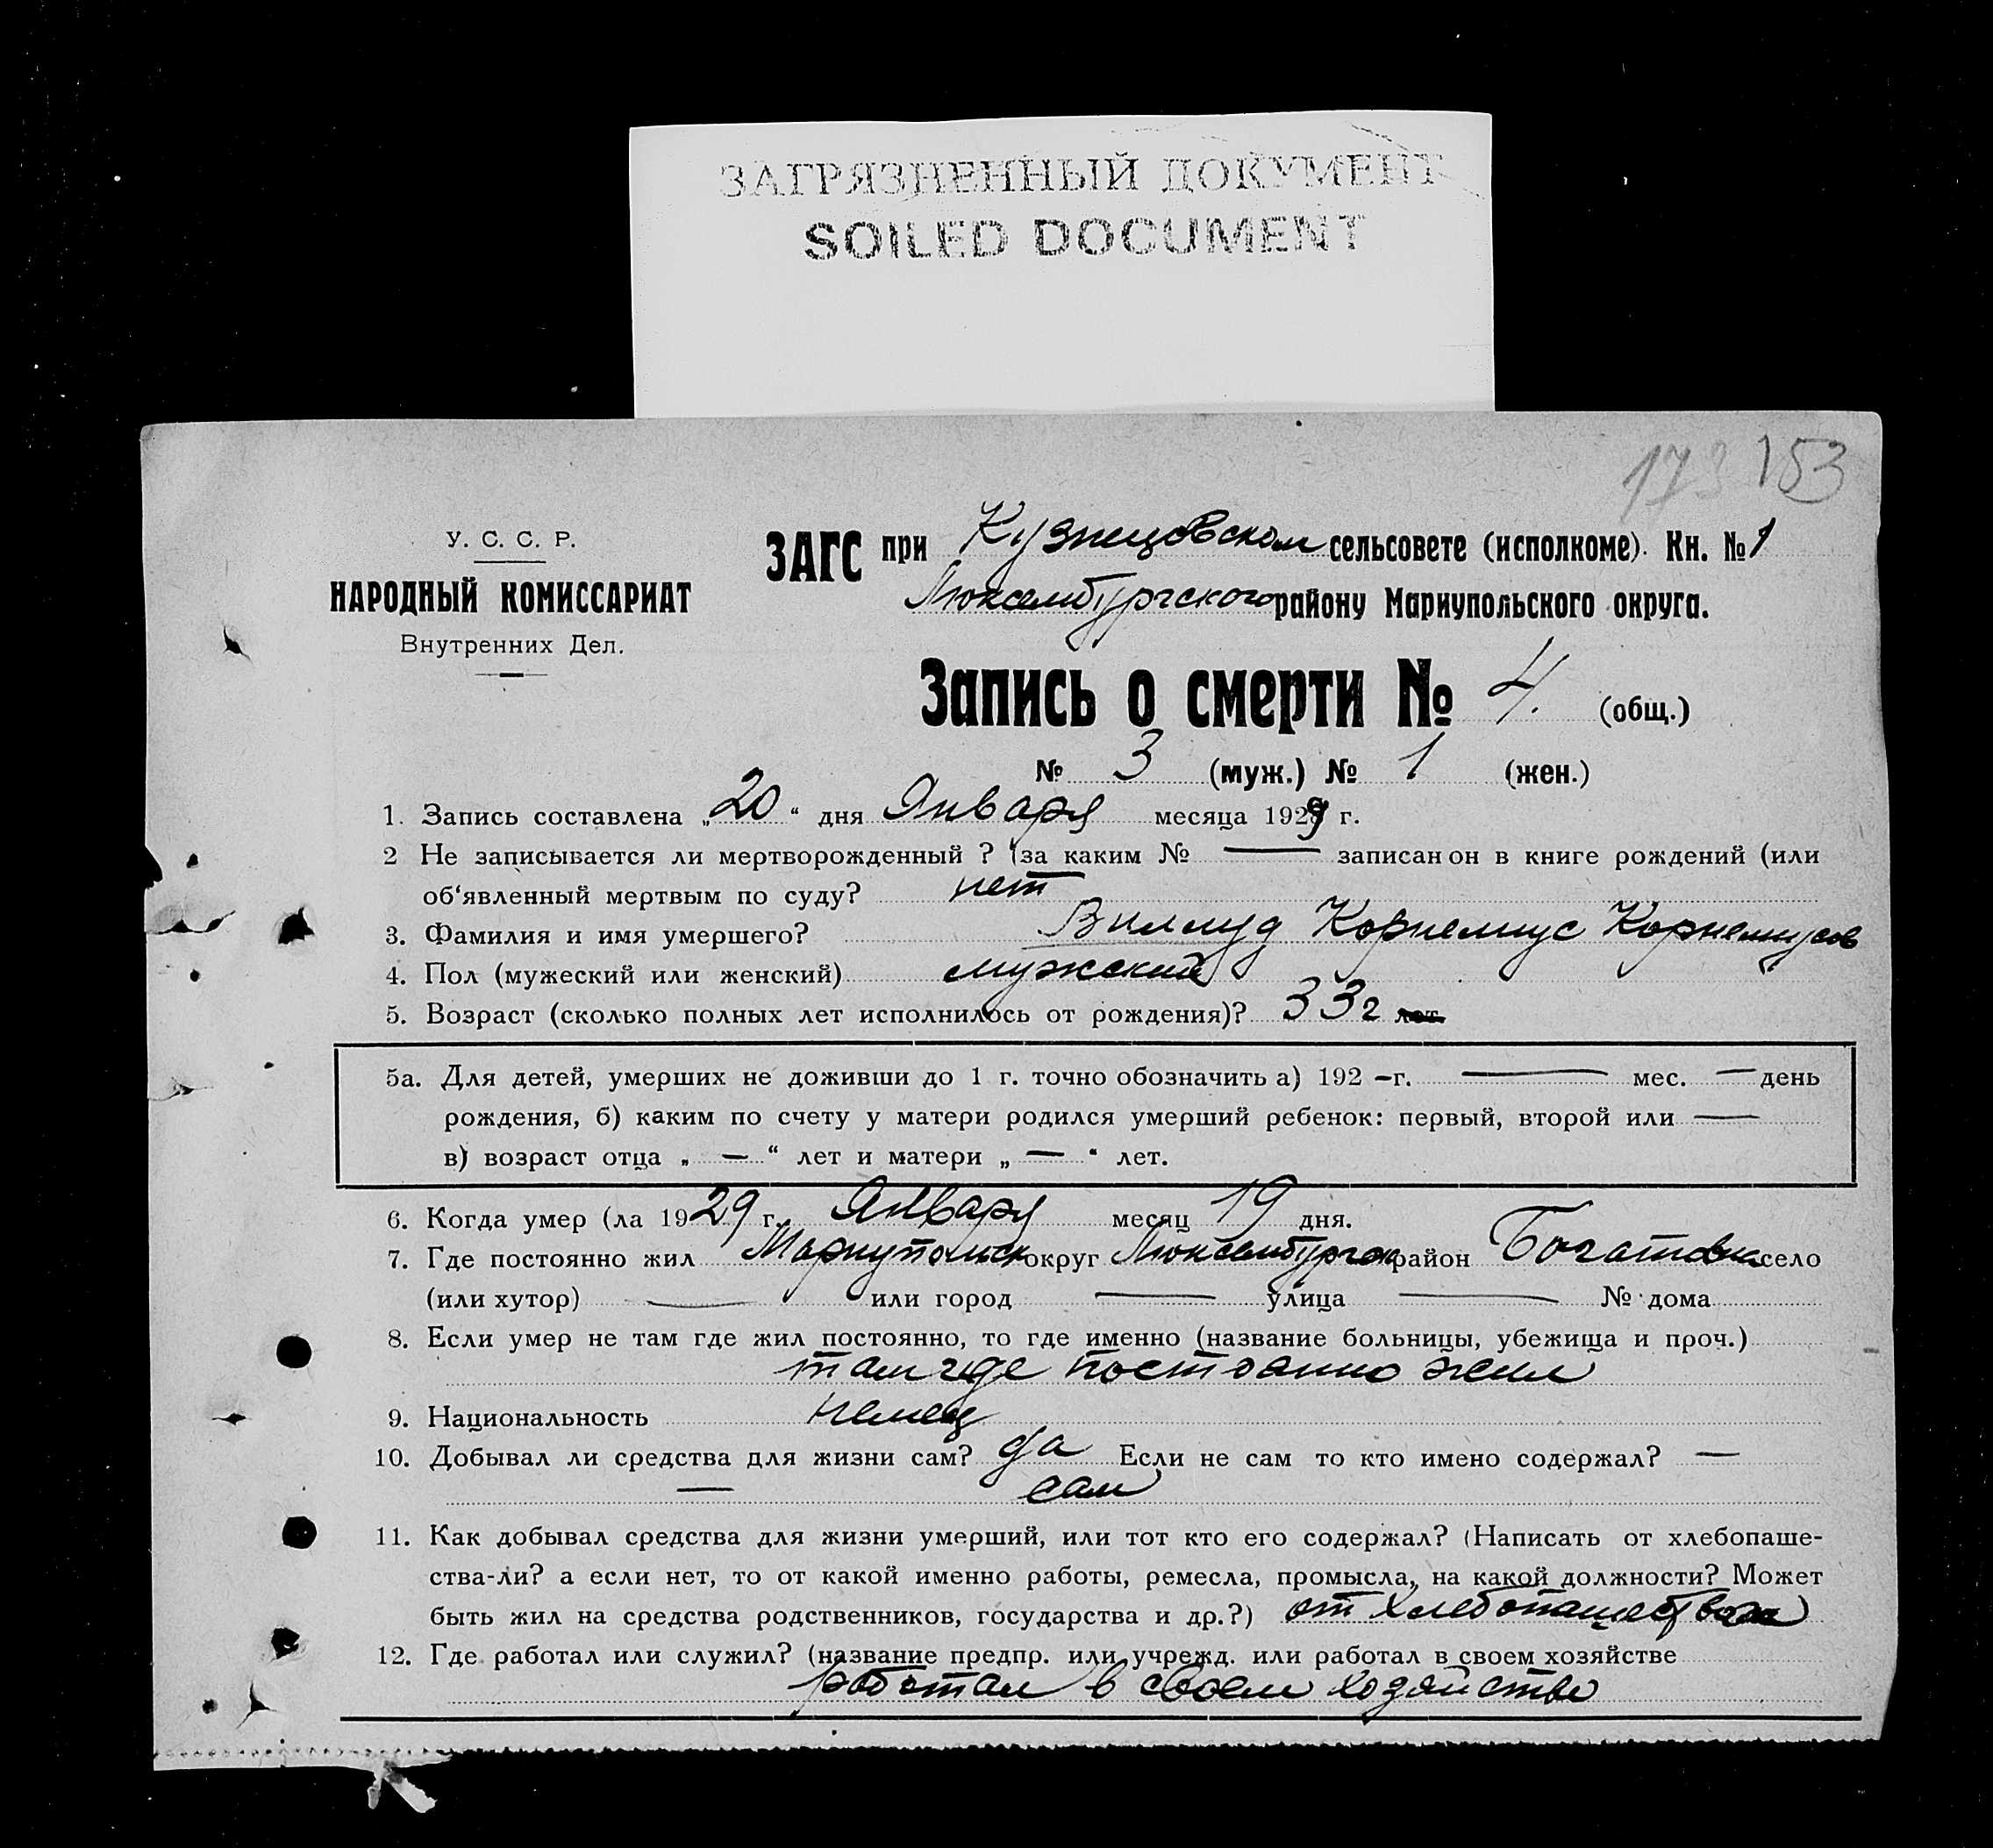 ЗАГРЯЗНЕННЫЙ ДОКУМЕНТ
SOILED DOCUMENT
173 153
У. С. С. Р.
НАРОДНЫЙ КОМИССАРИАТ
Внутренних Дел.
ЗАГС при Кузнецовском сельсовете (исполкоме). Кн. № 1
Люксембургского району Мариупольского округа.
Запись о смерти № 4. (общ.)
№ 3 (муж.) № 1 (жен.)
1. Запись составлена „20“ дня Января месяца 1929 г.
2 Не записывается ли мертворожденный ? (за каким № — записан он в книге рождений (или
об‘явленный мертвым по суду? нет
3. Фамилия и имя умершего? Виллуд Корнелиус Корнелиусов
4. Пол (мужеский или женский) мужский
5. Возраст (сколько полных лет исполнилось от рождения)? 33 г лет
5а. Для детей, умерших не доживши до 1 г. точно обозначить а) 192 — г. — мес. — день
рождения, б) каким по счету у матери родился умерший ребенок: первый, второй или —
в) возраст отца „ — “ лет и матери „ — “ лет.
6. Когда умер (ла 1929 г. Января месяц 19 дня.
7. Где постоянно жил Мариупольск округ Люксембургск район Богатовка село
(или хутор) — или город — улица — № дома
8. Если умер не там где жил постоянно, то где именно (название больницы, убежища и проч.)
там где постоянно жил
9. Национальность немец
10. Добывал ли средства для жизни сам? да Если не сам то кто имено содержал? —
— сам
11. Как добывал средства для жизни умерший, или тот кто его содержал? (Написать от хлебопаше-
ства-ли? а если нет, то от какой именно работы, ремесла, промысла, на какой должности? Может
быть жил на средства родственников, государства и др.?) от хлебопашества
12. Где работал или служил? (название предпр. или учрежд. или работал в своем хозяйстве
работал в своем хозяйстве